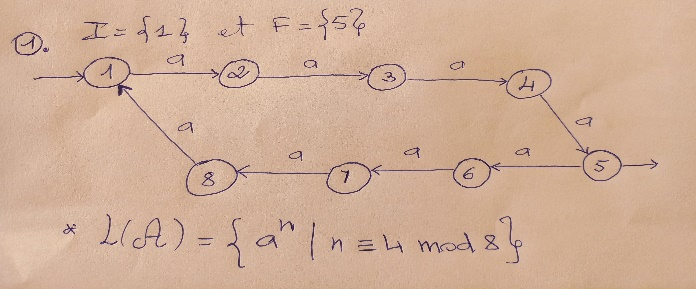 ①. I = {1} et F = {5}
1 a 2 a 3 a 4
a a
8 a 7 a 6 a 5
* L(A) = { aⁿ | n ≡ 4 mod 8}